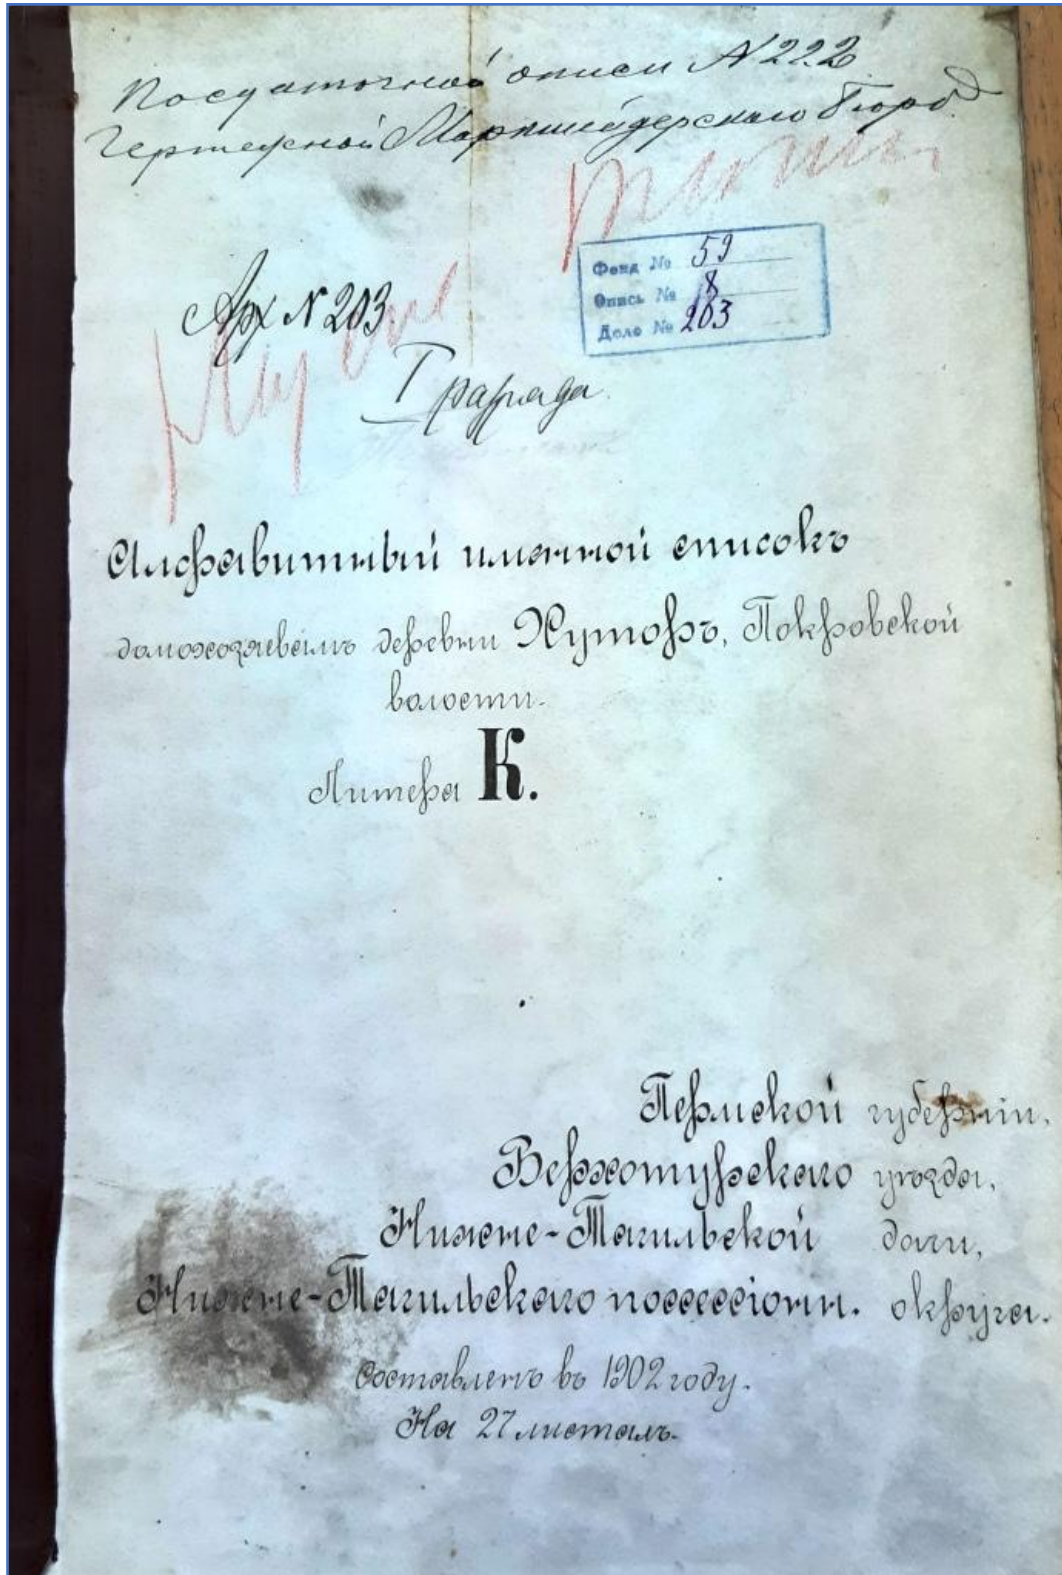 По сдаточной описи № 222
Чертежной Маркшейдерского Бюро
Арх № 203
Фонд № 59
Опись № 18
Дело № 203
I разряда
Алфавитный именной списокъ
домохозяевамъ деревни Хуторъ, Покровской
волости.
Литера К.
Пермской губерніи,
Верхотурскаго уѣзда,
Нижне-Тагильской дачи,
Нижне-Тагильскаго поссессіонн. округа.
Составленъ въ 1902 году.
На 27 листахъ.